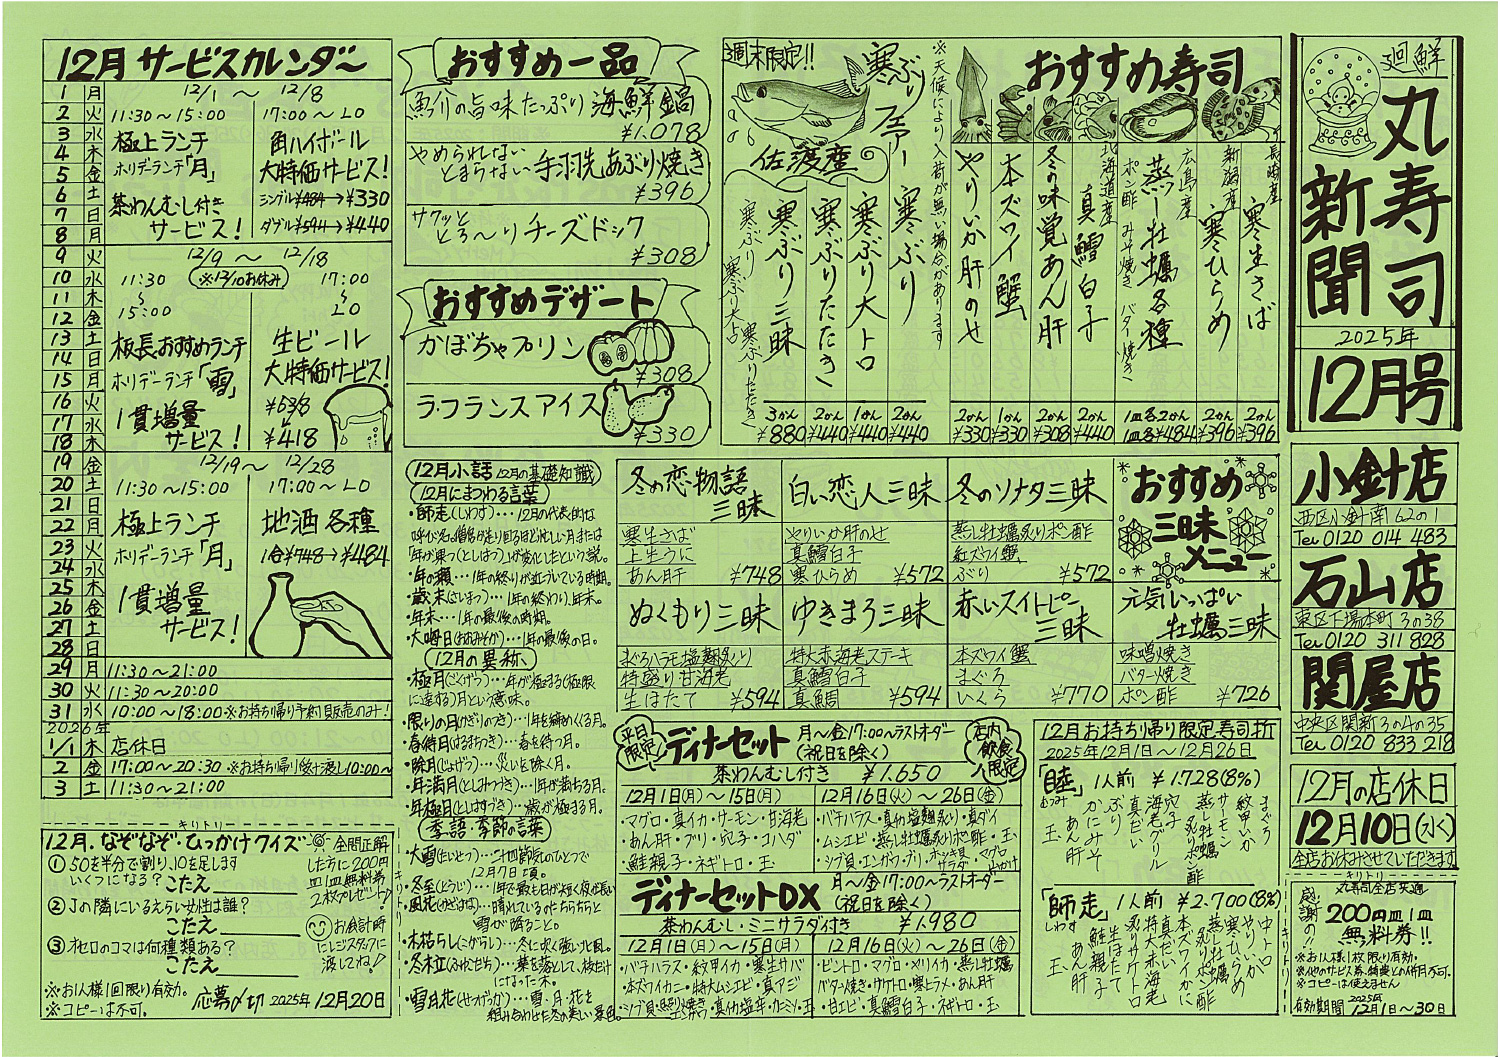 廻鮮
丸寿司
新聞
2025年
12月号
小針店
西区小針南62の1
Tel 0120 014 483
石山店
東区下場本町3の38
Tel 0120 311 828
関屋店
中央区関新3の4の35
Tel 0120 833 218
12月の店休日
12月10日(水)
全店お休みさせていただきます
キリトリ
丸寿司全店共通
感謝の!!
200円皿1皿
無料券!!
※お1人様1枚限り有効。
※コピーは使えません
有効期間 2025年 12月1日〜30日
12月サービスカレンダー
1 月
2 火
3 水
4 木
5 金
6 土
7 日
8 月
12/1 〜 12/8
11:30〜15:00
極上ランチ
ホリデーランチ「月」
茶わんむし付き
サービス!
17:00〜LO
角ハイボール
大特価サービス!
シングル¥484→¥330
ダブル¥594→¥440
9 火
10 水
11 木
12 金
13 土
14 日
15 月
16 火
17 水
18 木
12/9 〜 12/18
※12/10お休み
11:30
〜
15:00
板長おすすめランチ
ホリデーランチ「雪」
1貫増量
サービス!
17:00
〜
LO
生ビール
大特価サービス!
¥538
¥418
19 金
20 土
21 日
22 月
23 火
24 水
25 木
26 金
27 土
28 日
12/19〜 12/28
11:30〜15:00
極上ランチ
ホリデーランチ「月」
1貫増量
サービス!
17:00〜LO
地酒各種
1合¥748→¥484
29 月 11:30〜21:00
30 火 11:30〜20:00
31 水 10:00〜18:00※お持ち帰り予約販売のみ!
2026年
1/1 木 店休日
2 金 17:00〜20:30 ※お持ち帰り受け渡し10:00〜
3 土 11:30〜21:00
キリトリ
12月.なぞなぞ・ひっかけクイズ
全問正解した方に200円皿1皿無料券2枚プレゼント!
①50を半分で割り、10を足します
いくつになる? こたえ
②Jの隣にいるえらい女性は誰?
こたえ
③オセロのコマは何種類ある?
こたえ
お会計時にレジスタッフに渡してね!
※お1人様1回限り有効。
※コピーは不可。
応募〆切 2025年12月20日
キリトリ
おすすめ一品
魚介の旨味たっぷり 海鮮鍋
¥1.078
やめられない
とまらない 手羽先あぶり焼き
¥396
サクッと
とろ〜り チーズドック
¥308
おすすめデザート
かぼちゃプリン
¥308
ラ・フランスアイス
¥330
週末限定!!
寒ぶりフェアー
佐渡産
寒ぶり 2かん ¥440
寒ぶり大トロ 1かん ¥440
寒ぶりたたき 2かん ¥440
寒ぶり三昧 3かん ¥880
寒ぶり 寒ぶりたたき
寒ぶり大トロ
※天候により入荷が無い場合があります
おすすめ寿司
長崎産 寒生さば 2かん ¥396
新潟産 寒ひらめ 2かん ¥396
広島産 蒸し牡蠣各種 1皿各2かん 1皿各¥484
ポン酢 みそ焼き バター焼き
北海道産 真鱈白子 2かん ¥440
冬の味覚あん肝 2かん ¥308
本ズワイ蟹 1かん ¥330
やりいか肝のせ 2かん ¥330
12月小話 12月の基礎知識
12月にまつわる言葉
・師走(しわす)…12月の代表的な
呼び名。僧侶が走り回るほど忙しい月または
「年が果つ(としはつ)」が変化したという説。
・年の瀬…1年の終りが近づいている時期。
・歳末(さいまつ)…1年の終わり、年末。
・年末…1年の最後の時期。
・大晦日(おおみそか)…1年の最後の日。
12月の異称
・極月(ごくげつ)…年が極まる(極限
に達する)月という意味。
・限りの月(かぎりのつき)…1年を締めくくる月。
・春待月(はるまちつき)…春を待つ月。
・除月(じょげつ)…災いを除く月。
・年満月(としみつづき)…1年が満ちる月。
・年極月(としきはづき)…歳が極まる月。
季語・季節の言葉
・大雪(たいせつ)…二十四節気のひとつで
12月7日頃。
・冬至(とうじ)…1年で最も日が短く夜が長い
・風花(かざはな)…晴れているのにちらちらと
雪が降ること。
・木枯らし(こがらし)…冬に吹く強い北風。
・冬木立(ふゆこだち)…葉を落として、枝だけ
になった木。
・雪月花(せつげっか)…雪・月・花を
組み合わせた冬の美しい景色。
おすすめ
三昧
メニュー
冬の恋物語三昧
寒生さば
上生うに
あん肝 ¥748
白い恋人三昧
やりいか肝のせ
真鱈白子
寒ひらめ ¥572
冬のソナタ三昧
蒸し牡蠣炙りポン酢
紅ズワイ蟹
ぶり ¥572
ぬくもり三昧
まぐろハラモ塩麹炙り
特盛り甘海老
生ほたて ¥594
ゆきまろ三昧
特大赤海老ステーキ
真鱈白子
真鯛 ¥594
赤いスイートピー三昧
本ズワイ蟹
まぐろ
いくら ¥770
元気いっぱい
牡蠣三昧
味噌焼き
バター焼き
ポン酢 ¥726
平日限定
ディナーセット 月〜金17:00〜ラストオーダー
(祝日を除く)
店内飲食限定
茶わんむし付き ¥1.650
12月1日(月)〜15日(月)
・マグロ・真イカ・サーモン・甘海老
・あん肝・ブリ・穴子・コハダ
・鮭親子・ネギトロ・玉
12月16日(火)〜26日(金)
・バチハラス・真幼塩麹炙り・真ダイ
・ムシエビ・蒸し牡蠣炙りポン酢・玉
・ツブ貝・エンガワ・ブリ・ホッキ貝サラダ・マグロ山かけ
ディナーセットDX 月〜金17:00〜ラストオーダー
(祝日を除く)
茶わんむし・ミニサラダ付き ¥1.980
12月1日(月)〜15日(月)
・バチハラス・紋甲イカ・寒生サバ
・本ズワイカニ・特大ムシエビ・真アジ
12月16日(火)〜26日(金)
・ビントロ・マグロ・メリイカ・蒸し牡蠣
バター焼き・サケトロ・寒ヒラメ・あん肝
・甘エビ・真鱈白子・ネギトロ・玉
12月お持ち帰り限定寿司折
2025年12月1日〜12月26日
「睦」1人前 ¥1.728(8%)
むつみ
まぐろ
紋甲いか
サーモン
蒸し牡蠣
炙りポン酢
穴子
海老グリル
真だい
ぶり
かにみそ
あん肝
玉
「師走」1人前 ¥2.700(8%)
しわす
中トロ
やりいか
寒ひらめ
蒸し牡蠣
炙りポン酢
本ズワイかに
特大赤海老
真だい
炙りサケトロ
生ほたて
鮭親子
あん肝
玉